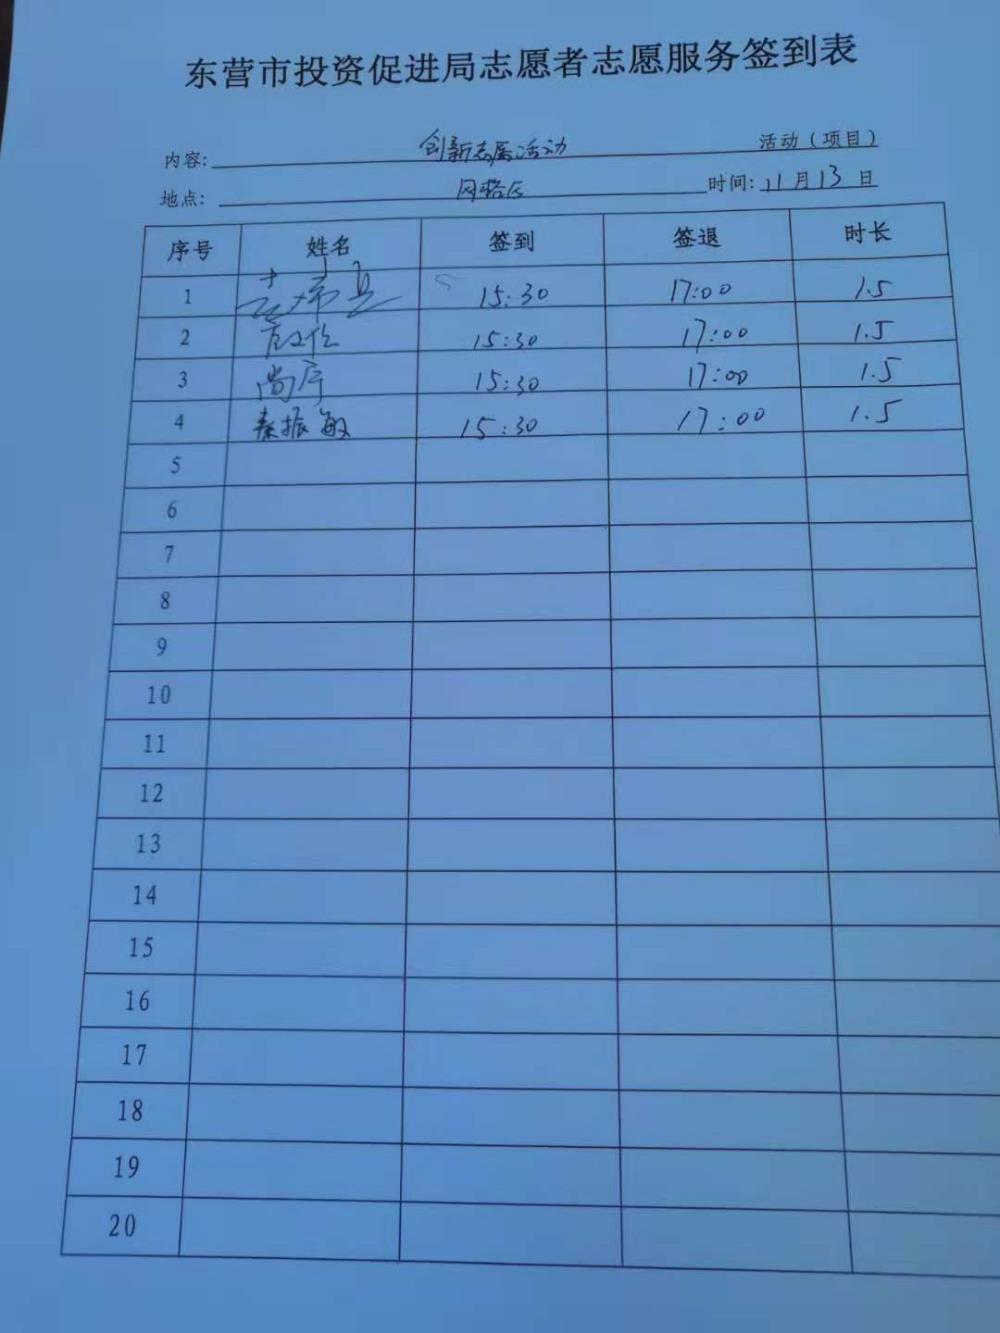 东营市投资促进局志愿者志愿服务签到表
内容: 创新志愿活动 活动（项目）
地点: 网格区 时间: 11月13日
序号 姓名 签到 签退 时长
1 15:30 17:00 1.5
2 15:30 17:00 1.5
3 尚序 15:30 17:00 1.5
4 秦振敏 15:30 17:00 1.5
5
6
7
8
9
10
11
12
13
14
15
16
17
18
19
20